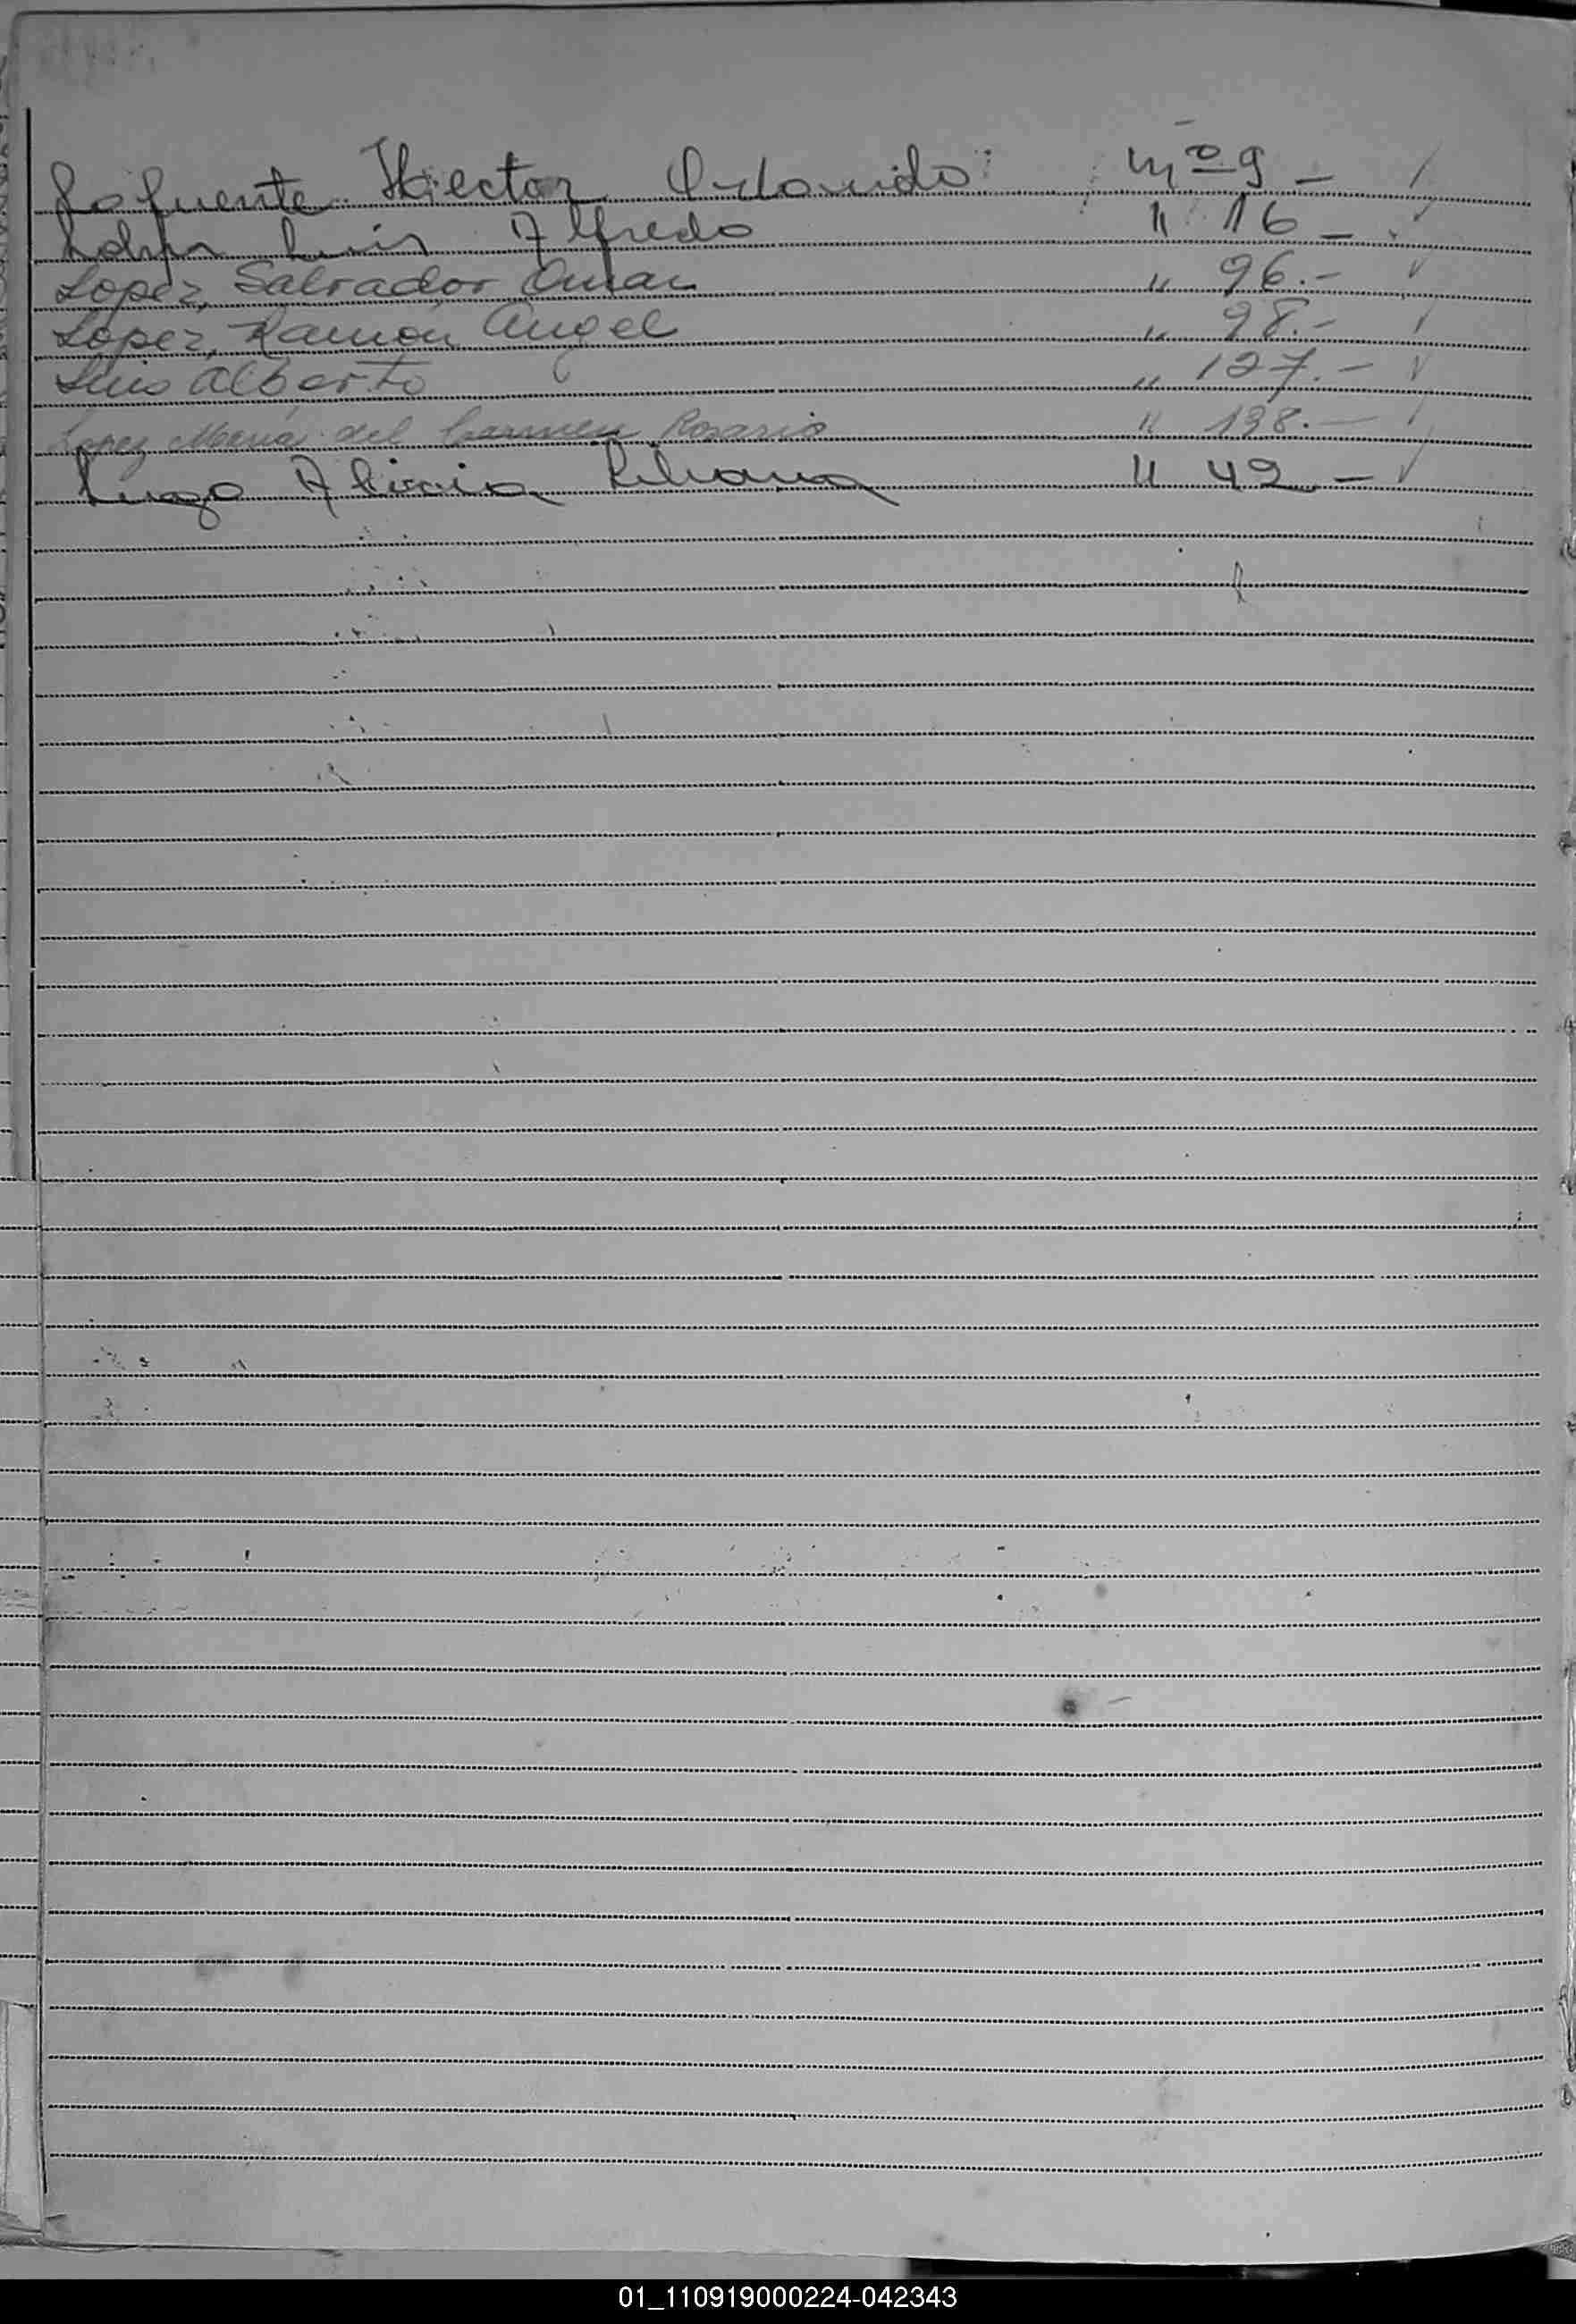 Lafuente Hector Orlando nº 9 -
Luis Alfredo " 16 -
Lopez, Salvador Omar " 96.-
Lopez, Ramón Angel " 98.-
Luis Alberto " 127.-
Lopez Maria del Carmen Rosario " 138.-
Lugo Alicia Liliana " 42 -
01_110919000224-042343